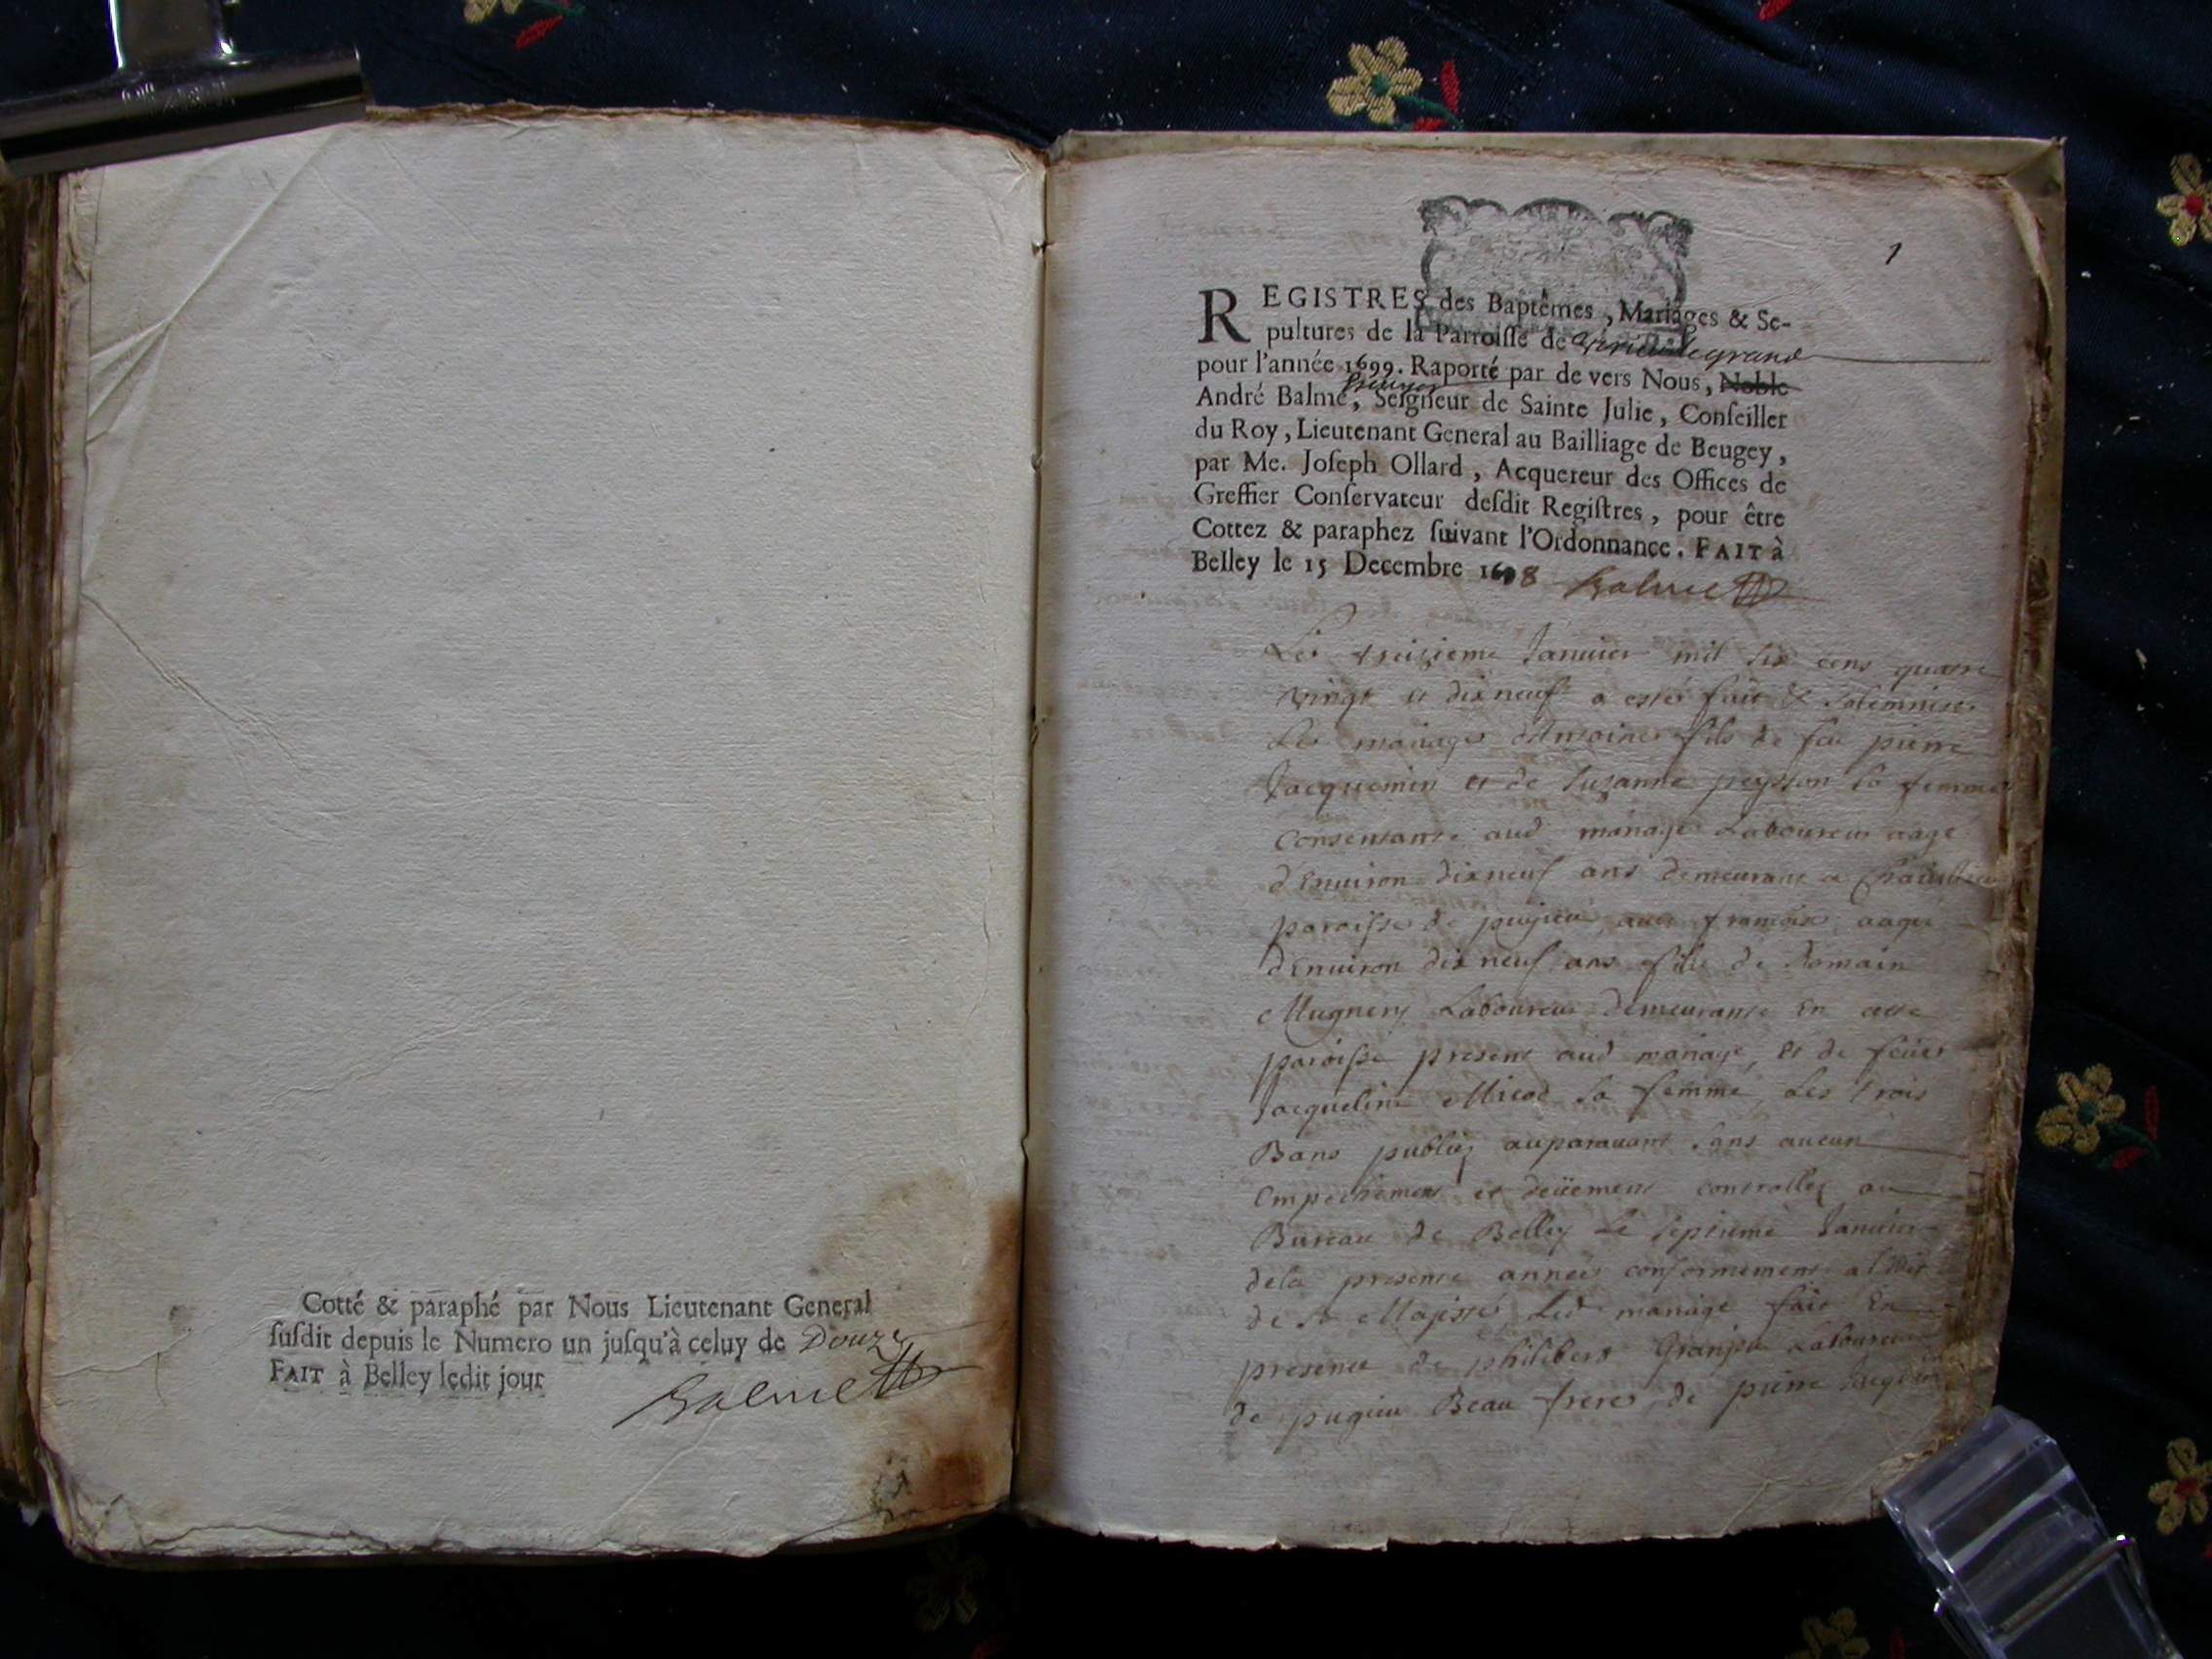 Cotté & paraphé par Nous Lieutenant General
ſuſdit depuis le Numero un juſqu'à celuy de Douze
FAIT à Belley ledit jour
Balme
1
REGISTRES des Baptêmes, Mariages & Se-
pultures de la Parroiſſe de Virieu le grand
pour l'année 1699. Raporté par de vers Nous, Noble
André Balme, Seigneur de Sainte Julie, Conſeiller
du Roy, Lieutenant General au Bailliage de Beugey,
par Me. Joſeph Ollard, Acquereur des Offices de
Greffier Conſervateur deſdit Regiſtres, pour être
Cottez & paraphez ſuivant l'Ordonnance. FAIT à
Belley le 15 Decembre 1698 Balme
Le treizieme Januier mil six cens quatre
vingt et dixneuf a esté fait & solemnise
Le mariage d'Antoine fils de feu pierre
Jacquemin et de Suzanne peysson sa femme
Consentante aud mariage Laboureur aagé
d'Enuiron dixneuf ans demeurant a
paroisse de pugieu auec francoise aagée
d'Enuiron dix neuf ans fille de Romain
Mugnery Laboureur demeurante En cette
paroisse present aud mariage, et de feüe
Jacqueline Micod sa femme, Les trois
Bans publiez auparauant sans aucun
Empechement et deüement controllez au
Bureau de Belley Le septieme Januier
dela presente année conformement a l'Edit
de sa Majesté, Led mariage fait En
presence de philibert Granjon Laboureur
de pugieu Beau frere, de pierre Jacquemin